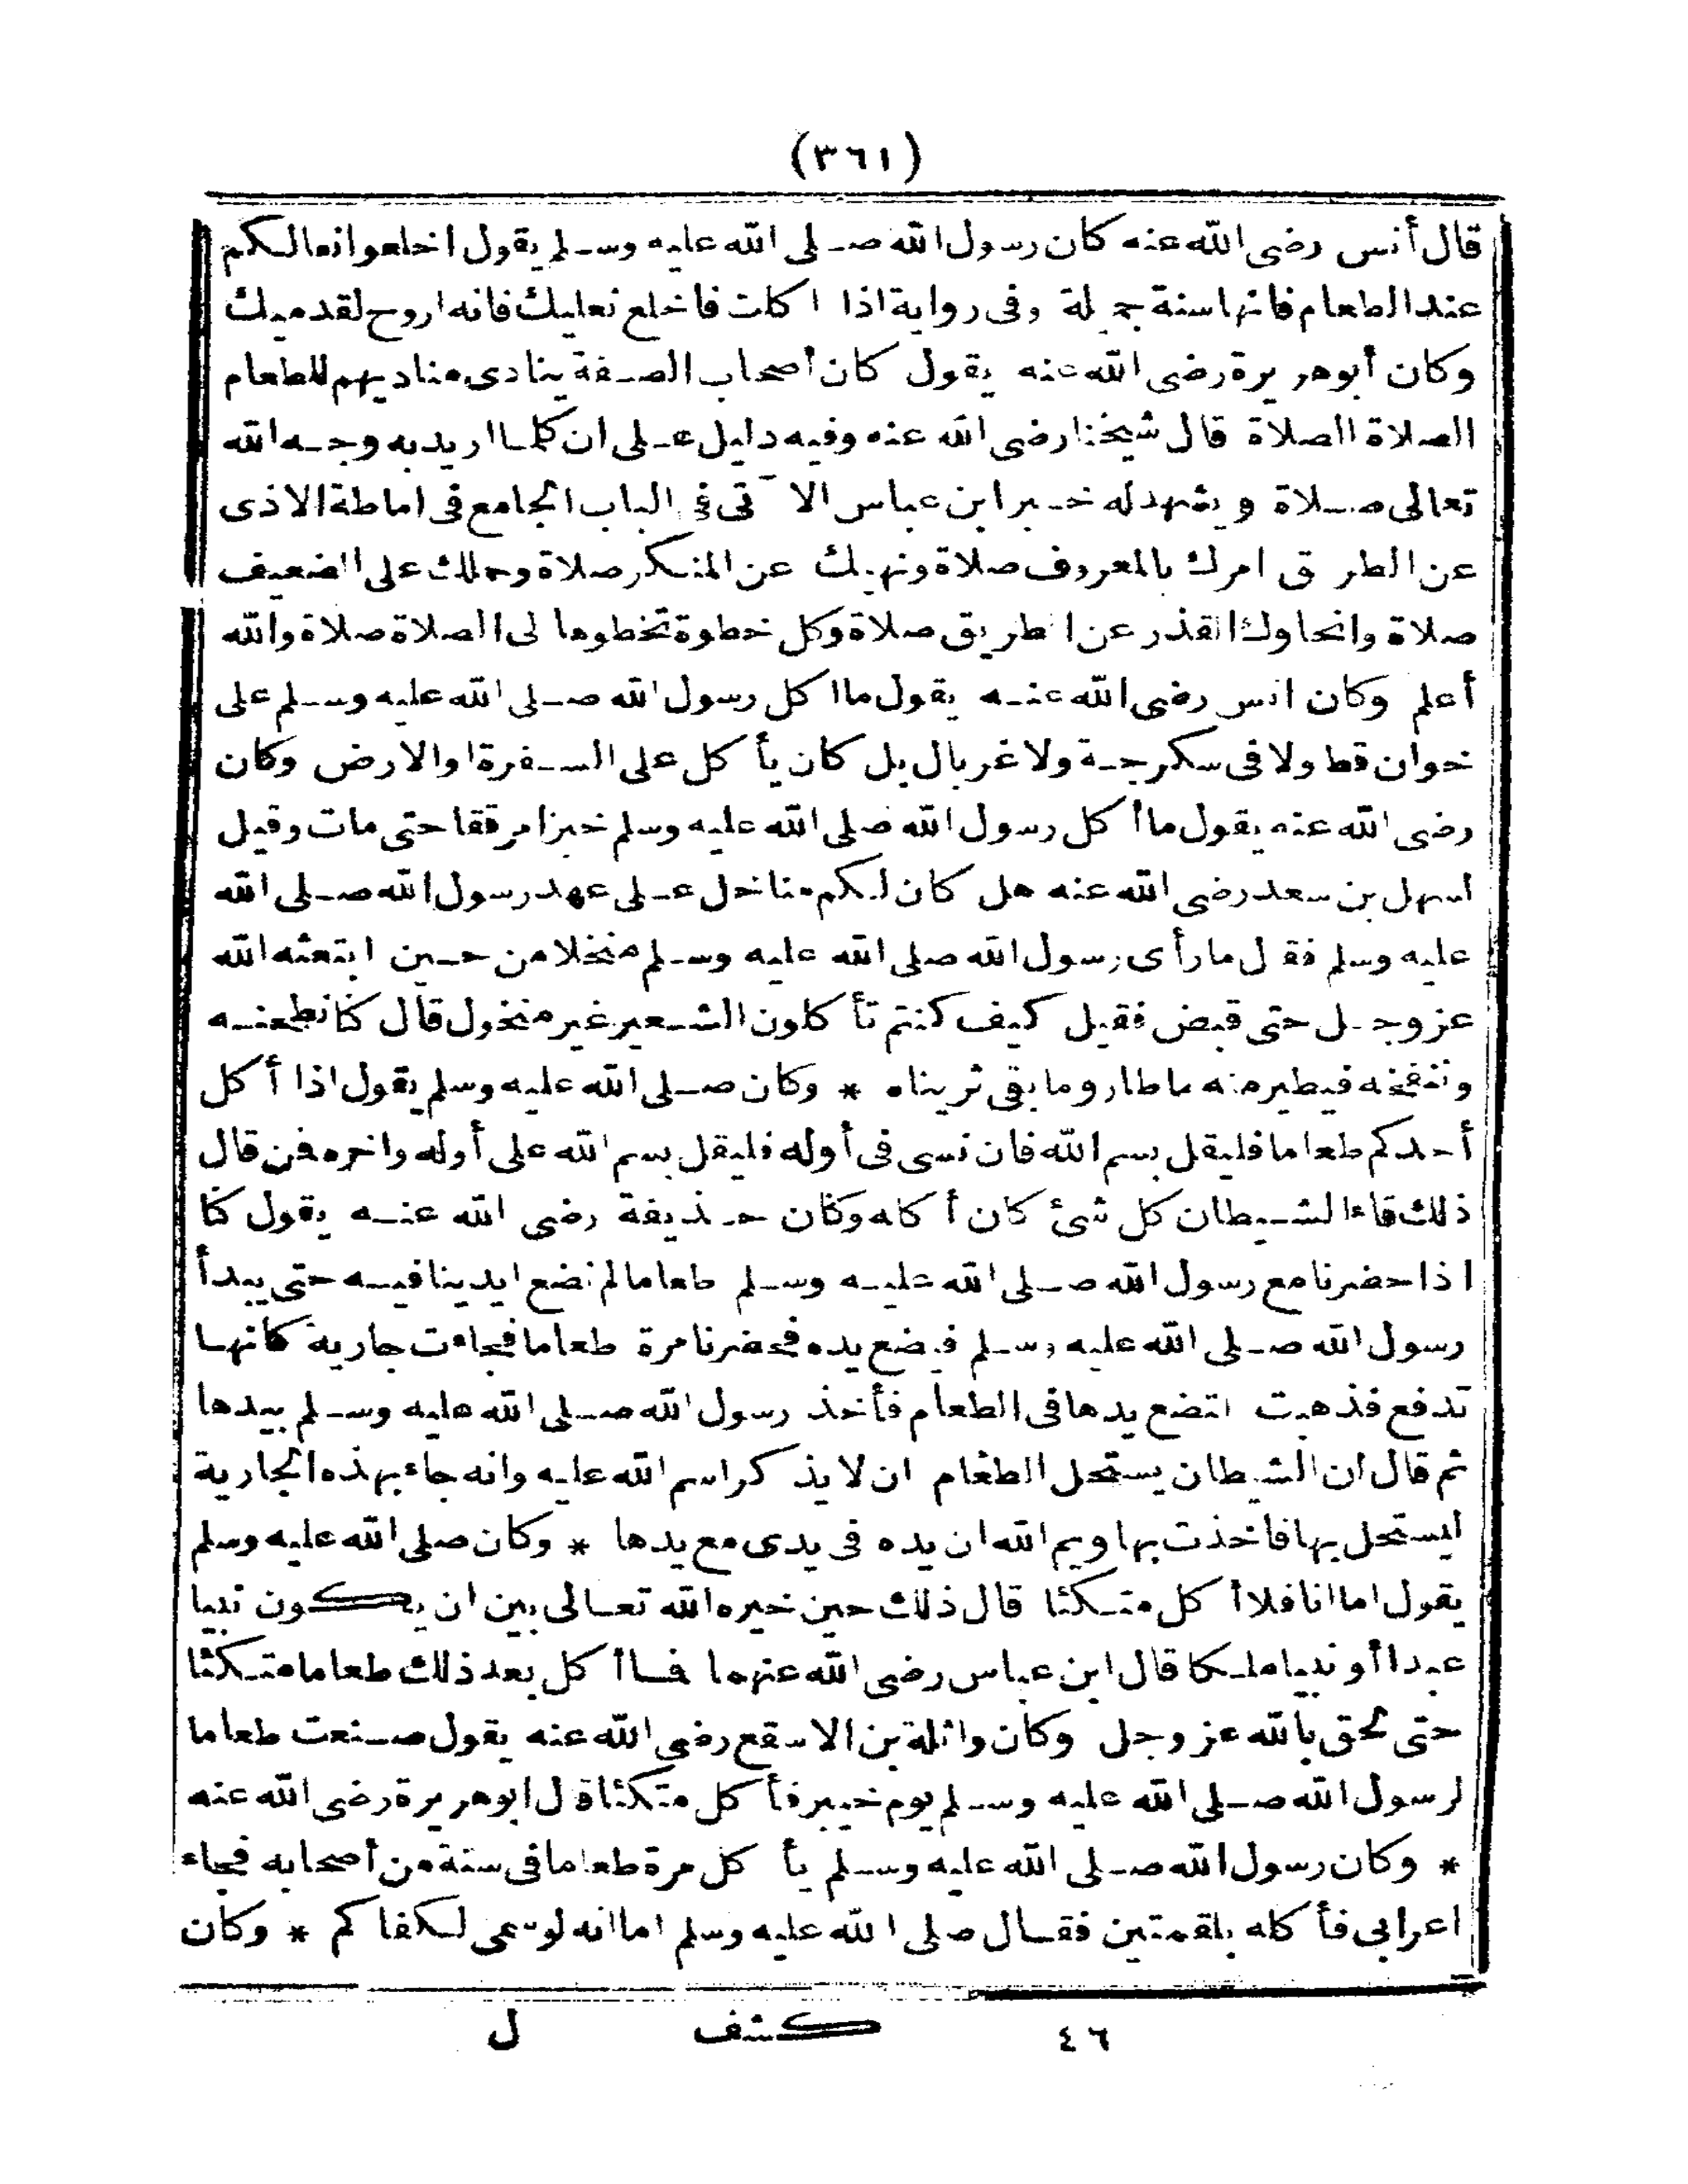 (٣٦١)
قال أنس رضى الله عنه كان رسول الله صلى الله عليه وسلم يقول اخلعوا نعالكم
عند الطعام فانها سنة جميلة وفى رواية اذا اكلت فاخلع نعليك فانه اروح لقدميك
وكان أبو هريرة رضى الله عنه يقول كان أصحاب الصفة ينادى مناديهم للطعام
الصلاة الصلاة قال شيخنا رضى الله عنه وفيه دليل على ان كلما اريد به وجه الله
تعالى صلاة ويشهد له خبر ابن عباس الآتى فى الباب الجامع فى اماطة الاذى
عن الطريق امرك بالمعروف صلاة ونهيك عن المنكر صلاة وحملك على الضعيف
صلاة وانحاوك القذر عن الطريق صلاة وكل خطوة تخطوها لى الصلاة صلاة والله
أعلم وكان انس رضى الله عنه يقول ما اكل رسول الله صلى الله عليه وسلم على
خوان قط ولا فى سكرجة ولا غربال بل كان يأكل على السفرة او الارض وكان
رضى الله عنه يقول ما أكل رسول الله صلى الله عليه وسلم خبزا مرققا حتى مات وقيل
لسهل بن سعد رضى الله عنه هل كان لكم مناخل على عهد رسول الله صلى الله
عليه وسلم فقال ما رأى رسول الله صلى الله عليه وسلم منخلا من حين ابتعثه الله
عز وجل حتى قبض فقيل كيف كنتم تأكلون الشعير غير منخول قال كنا نطحنه
وننفخه فيطير منه ما طار وما بقى ثريناه * وكان صلى الله عليه وسلم يقول اذا أكل
أحدكم طعاما فليقل بسم الله فان نسى فى أوله فليقل بسم الله على أوله واخره فمن قال
ذلك قاء الشيطان كل شئ كان أكله وكان حذيفة رضى الله عنه يقول كنا
اذا حضرنا مع رسول الله صلى الله عليه وسلم طعاما لم نضع ايدينا فيه حتى يبدأ
رسول الله صلى الله عليه وسلم فيضع يده فحضرنا مرة طعاما فجاءت جارية كانها
تدفع فذهبت لتضع يدها فى الطعام فأخذ رسول الله صلى الله عليه وسلم بيدها
ثم قال ان الشيطان يستحل الطعام ان لا يذكر اسم الله عليه وانه جاء بهذه الجارية
ليستحل بها فاخذت بها ويم الله ان يده فى يدى مع يدها * وكان صلى الله عليه وسلم
يقول اما انا فلا أكل متكئا قال ذلك حين خيره الله تعالى بين ان يكون نبيا
عبدا أو نبيا ملكا قال ابن عباس رضى الله عنهما فما أكل بعد ذلك طعاما متكئا
حتى لحق بالله عز وجل وكان واثلة بن الاسقع رضى الله عنه يقول صنعت طعاما
لرسول الله صلى الله عليه وسلم يوم خيبر فأكل متكئا قال ابو هريرة رضى الله عنه
* وكان رسول الله صلى الله عليه وسلم يأكل مرة طعاما فى ستة من أصحابه فجاء
اعرابى فأكله بلقمتين فقال صلى الله عليه وسلم اما انه لو سمى لكفاكم * وكان
٤٦ كشف ل